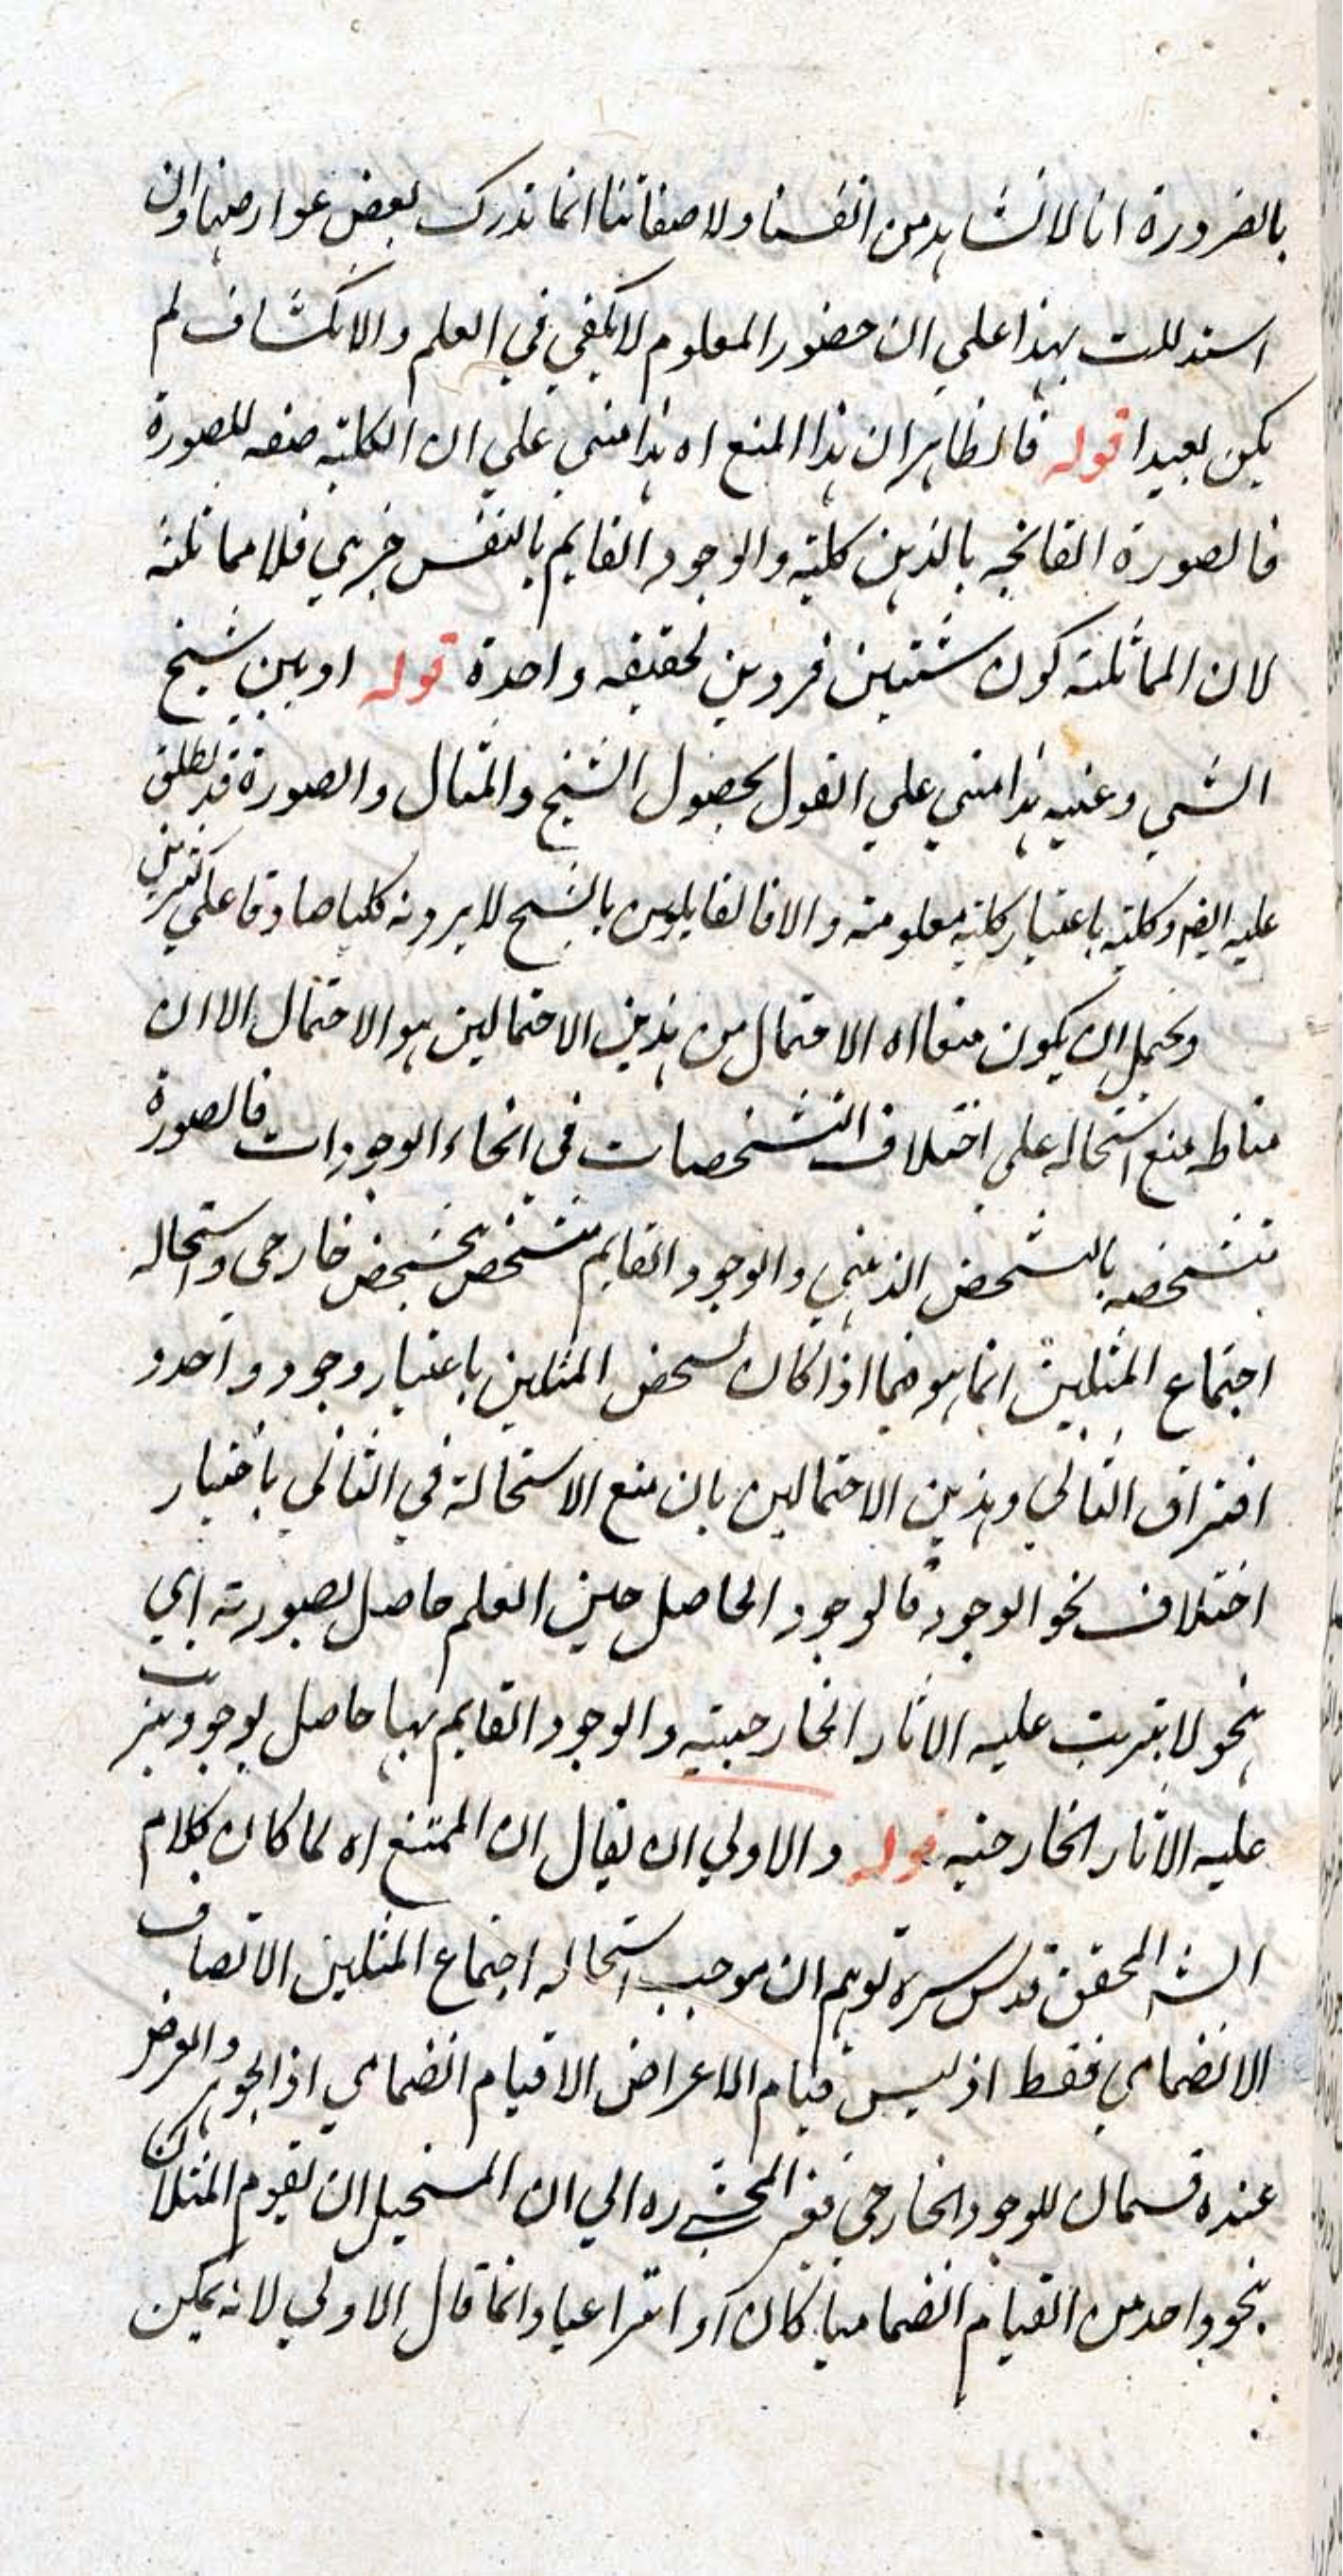 بالضرورة انا لا نشاهد من انفسنا ولا صفاتنا انما ندرك بعض عوارضها وان
استدللت بهذا على ان حضور المعلوم لا يكفي في العلم والانكشاف لم
يكن بعيدا قوله فالظاهر ان هذا المنع اه هذا مبني علي ان الكلية صفة للصورة
فالصورة القائمة بالذهن كلية والوجود القايم بالنفس جزءي فلا مماثلة
لان المماثلة كون شيئين فردين لحقيقة واحدة قوله او بين شبح
الشي وعينه هذا مبني علي القول بحصول الشبح والمثال والصورة قد يطلق
عليه ايضا وكلية باعتبار كلية معلومة والا فالقايلون بالشبح لا يرونه كليا صادقا علي كثيرين
ويحتمل ان يكون منعا اه الاحتمال من هذين الاحتمالين هو الاحتمال الا ان
مناط منع استحاله علي اختلاف التشخصات في انحاء الوجودات فالصورة
متشخصه بالتشخص الذهني والوجود القايم متشخص بتشخص خارجي واستحاله
اجتماع المثلين انما هو فيما اذا كان تشخص المثلين باعتبار وجود واحد و
افتراق الثاني وهذين الاحتمالين بان منع الاستحالة في الثاني باختيار
اختلاف نحو الوجود فالوجود الحاصل حين العلم حاصل بصورته اي
بنحو لا يترتب عليه الاثار الخارجيته والوجود القايم بها حاصل بوجود يترتب
عليه الاثار الخارجيه قوله والاولي ان يقال ان الممتنع اه لما كان كلام
الشه المحقق قدس سره توهم ان موجب استحاله اجتماع المثلين الاتصاف
الانضمامي فقط اذ ليس قيام الاعراض الا قيام انضمامي اذ الجوهر والعرض
عنده قسمان للوجود الخارجي المحشي ره الي ان المستحيل ان يقوم المثلان
بنحو واحد من القيام انضماميا كان او انتزاعيا وانما قال الاولي لانه يمكن